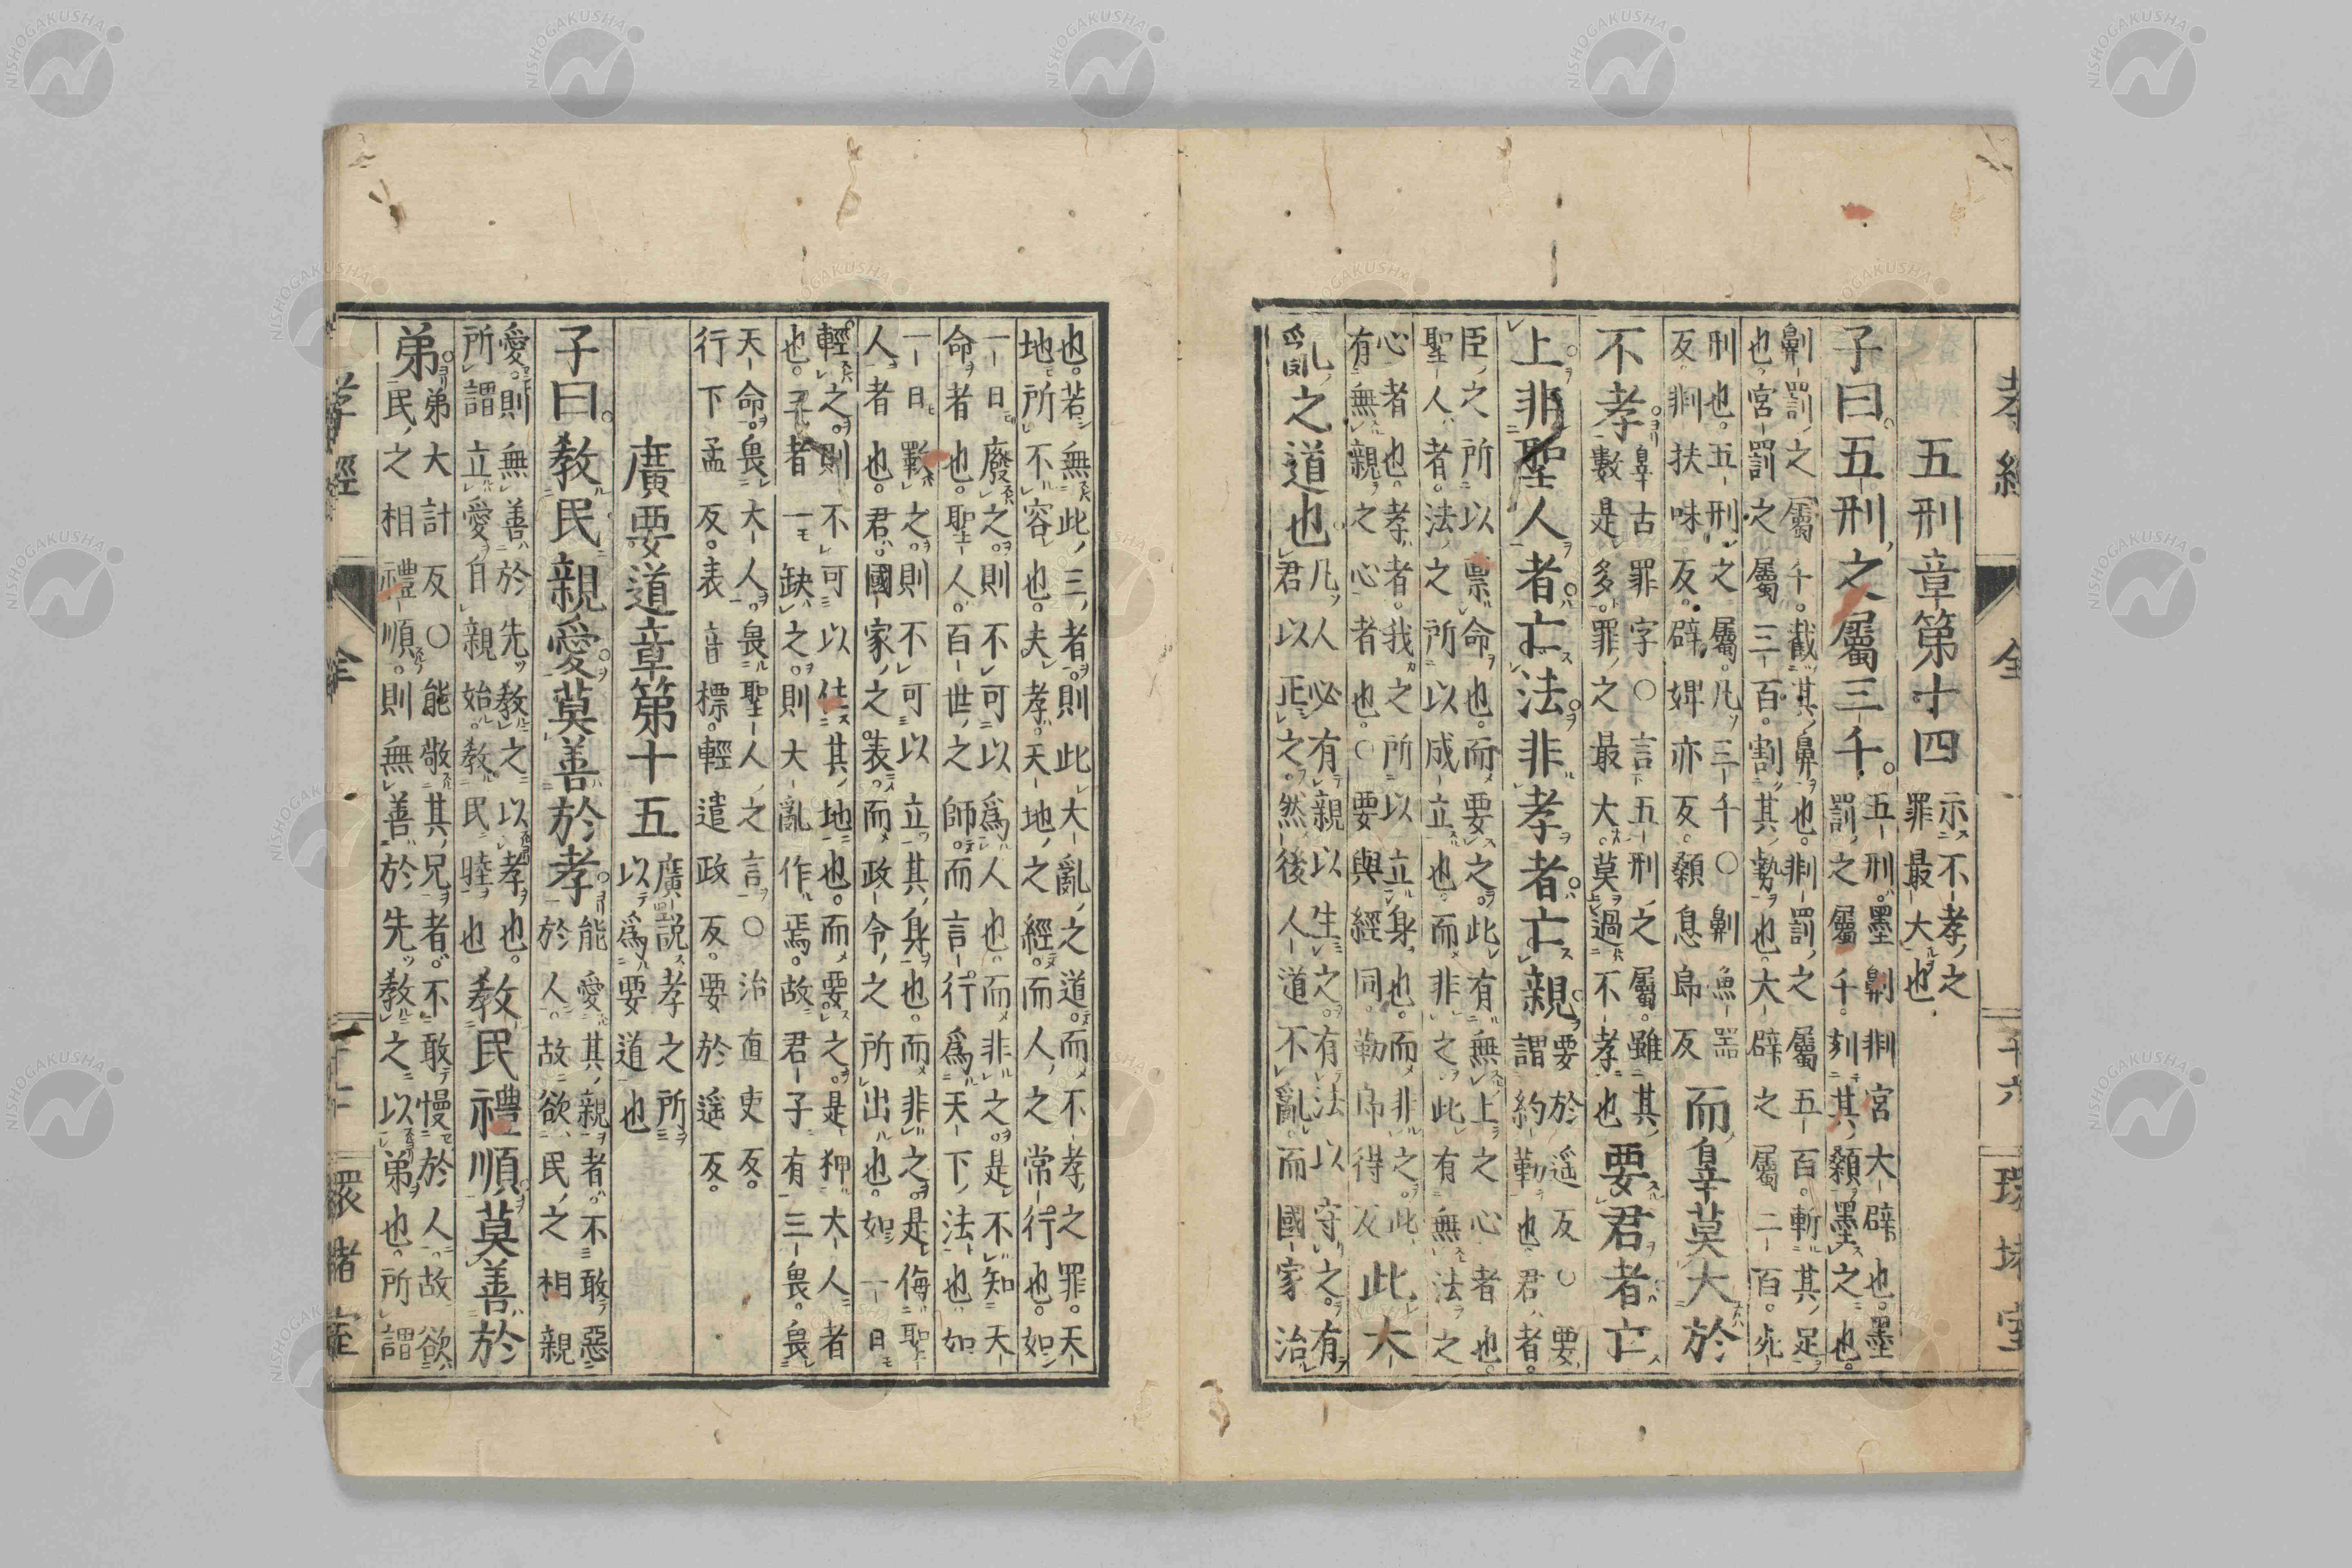 五刑章第十四 示不孝之罪最大也
子曰五刑之屬三千 五刑墨劓剕宮大辟也墨罰之屬千刻其顙墨之也
劓罰之屬千截其鼻也剕罰之屬五百斬其足也宮罰之屬三百割其勢也大辟之屬二百死
刑也五刑之屬凡三千○劓魚器反剕扶味反辟婢亦反顙息㫑反 而辠莫大於
不孝 辠古罪字○言五刑之屬雖其數是多罪之最大莫過不孝也 要君者亡
上非聖人者亡法非孝者亡親 要於遥反○要謂約勒也君者
臣之所以禀命也而要之此有無上之心者也聖人者法之所以成立也而非之此有無法之
心者也孝者我之所以立身也而非之此有無親之心者也○要與經同勒㫑得反 此大
亂之道也 凡人必有親以生之有法以守之有君以正之然後人道不亂而國家治
孝經
全
二十六
環堵室
也若無此三者則此大亂之道而不孝之罪天地所不容也夫孝天地之經而人之常行也如
一日廢之則不可以爲人也而非之是不知天命者也聖人百世之師而言行爲天下法也如
一日斁之則不可以立其身也而非之是侮聖人者也君國家之表而政令之所出也如一日
輕之則不可以使其地也而要之是狎大人者也子者一缺之則大亂作焉故君子有三畏畏
天命畏大人畏聖人之言○治直吏反行下孟反表音標輕遣政反要於遥反
廣要道章第十五 廣說孝之所以爲要道也
子曰教民親愛莫善於孝 能愛其親者不敢惡於人故欲民之相親
愛則無善於先教之以孝也所謂立愛自親始教民睦也 教民禮順莫善於
弟 弟大計反○能敬其兄者不敢慢於人故欲民之相禮順則無善於先教之以弟也所謂
孝經
全
環堵室